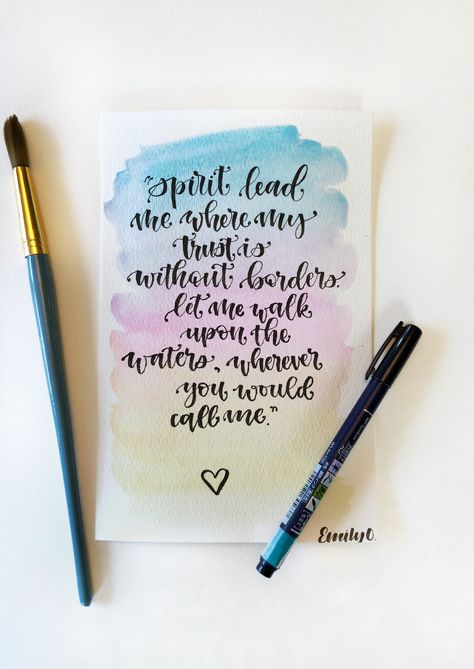 "spirit lead
me where my
trust is
without borders.
let me walk
upon the
waters, wherever
you would
call me."
Emily O.